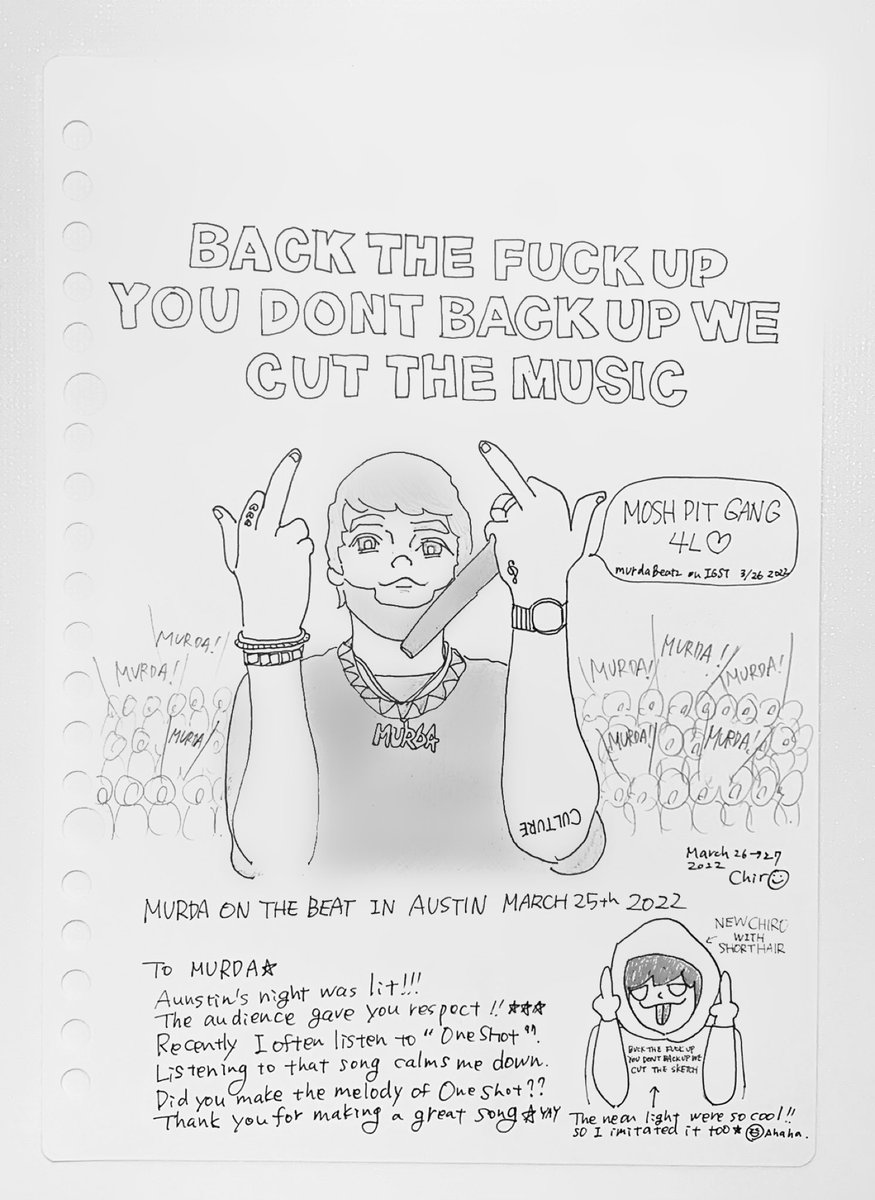 BACK THE FUCK UP
YOU DONT BACK UP WE
CUT THE MUSIC
MOSH PIT GANG
4L♡
murdaBeatz on IGST 3/26 2022
MURDA!
MURDA!
MURDA
MURDA!
MURDA!
MURDA!
MURDA!
MURDA!
MURDA
CULTURE
March 26→27
2022
Chiro
MURDA ON THE BEAT IN AUSTIN MARCH 25th 2022
NEW CHIRO
WITH
SHORT HAIR
To MURDA☆
Aunstin's night was lit!!!
The audience gave you respect!! ☆☆☆
Recently I often listen to "One Shot".
Listening to that song calms me down.
Did you make the melody of One Shot??
Thank you for making a great song☆YAY
BACK THE FUCK UP
YOU DONT BACK UP WE
CUT THE SKETCH
The neon light were so cool!!
SO I imitated it too★ Ahaha.